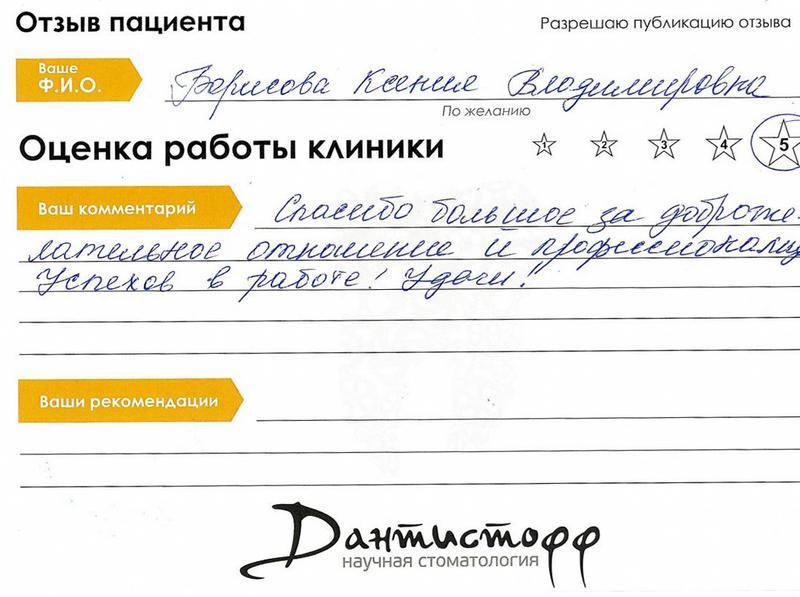 Отзыв пациента
Разрешаю публикацию отзыва
Ваше
Ф.И.О.
Борисова Ксения Владимировна
По желанию
Оценка работы клиники
1 2 3 4 5
Ваш комментарий
Спасибо большое за доброже-
лательное отношение и профессионализ
Успехов в работе! Удачи!!
Ваши рекомендации
Дантистофф
научная стоматология